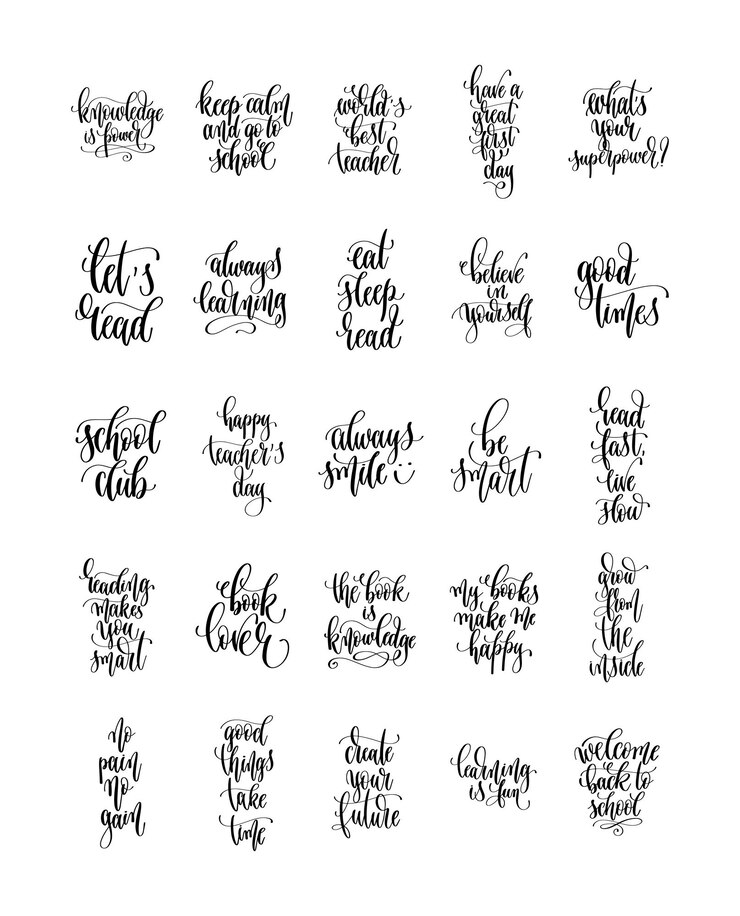 knowledge
is power
keep calm
and go to
school
world's
best
teacher
have a
great
first
day
what's
your
superpower?
let's
read
always
learning
eat
sleep
read
believe
in
yourself
good
times
school
club
happy
teacher's
day
always
smile
be
smart
read
fast,
live
slow
reading
makes
you
smart
book
lover
the book
is
knowledge
my books
make me
happy
grow
from
the
inside
no
pain
no
gain
good
things
take
time
create
your
future
learning
is fun
welcome
back to
school